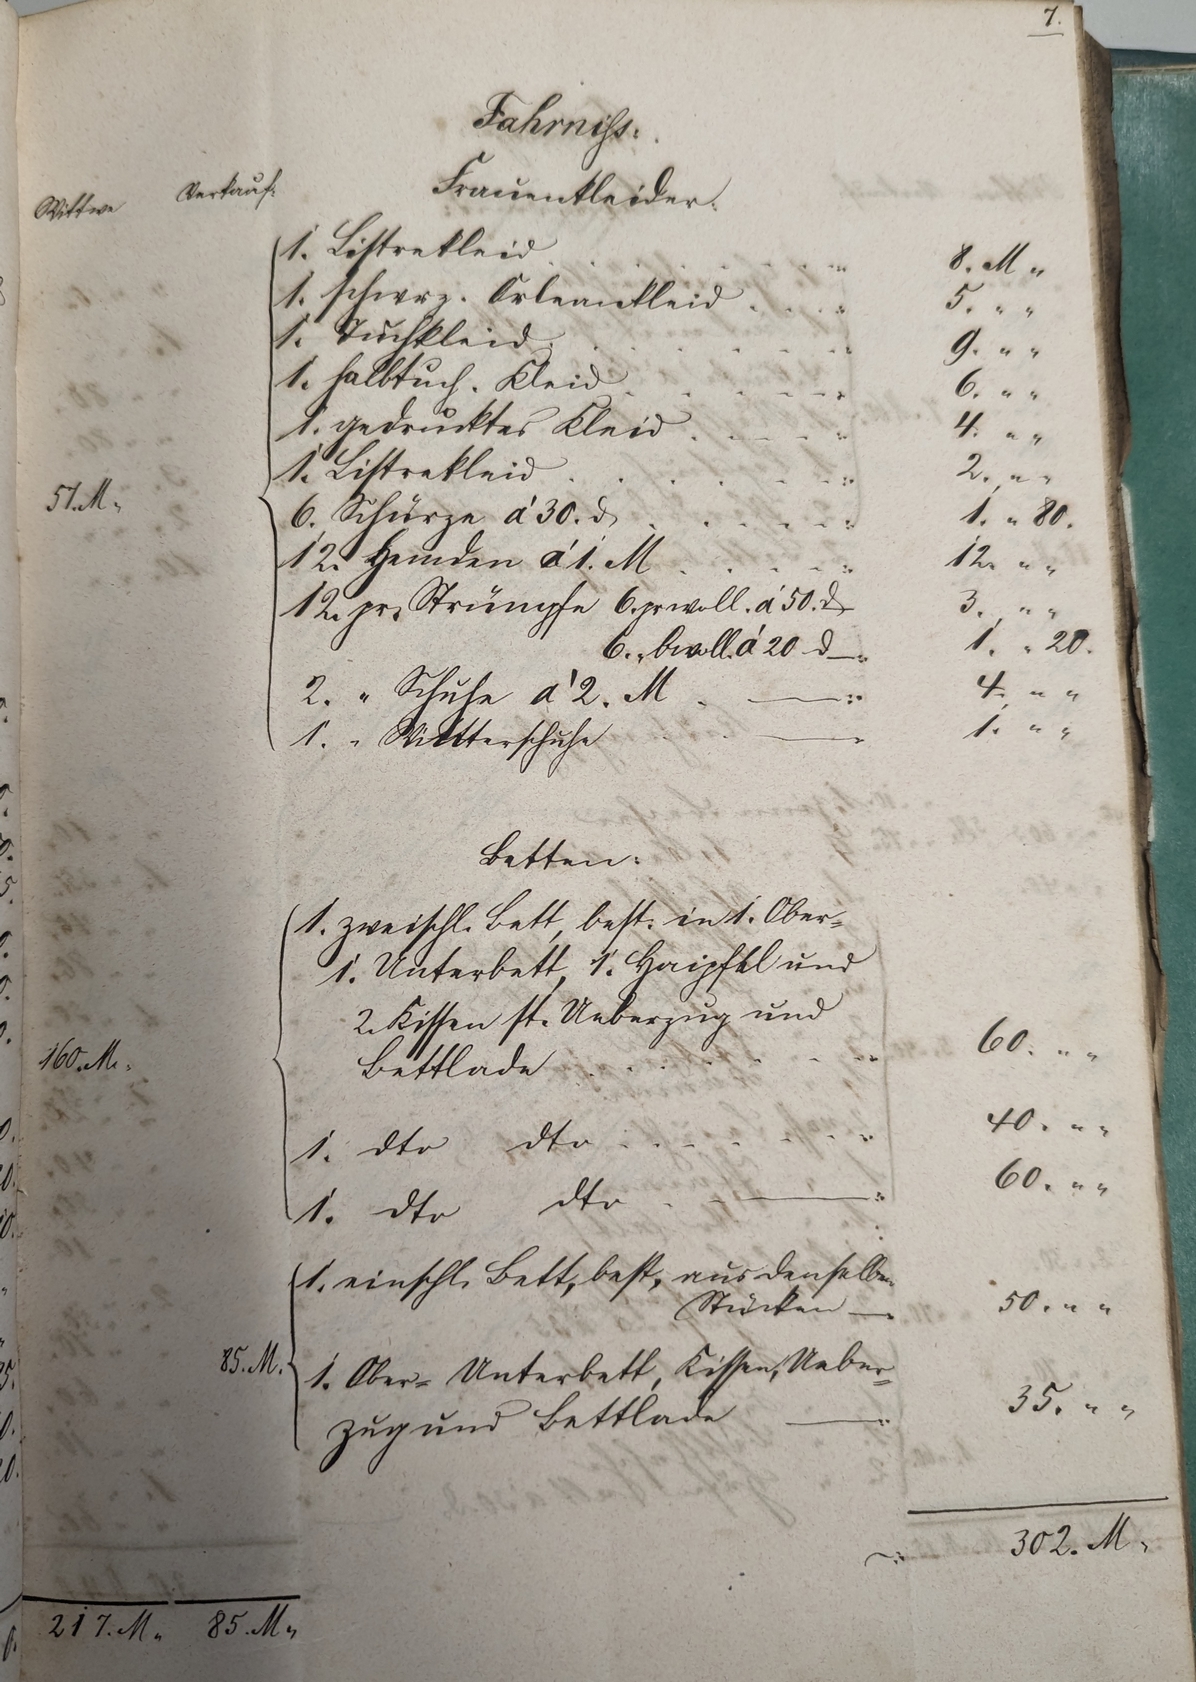 7.
Fahrniß.
Wittwe Verkauf. Frauenkleider.
1. Listrekleid 8. M „
1. schwrz. Orleankleid 5. „ „
1. Tuchkleid 9. „ „
1. halbtuch. Kleid 6. „ „
1. gedrucktes Kleid 4. „ „
1. Listrekleid 2. „ „
57. M „ 6. Schürze á 30. d 1. „ 80.
12. Hemden á 1. M 12. „ „
12. pr. Strümpfe 6. pr woll. á 50. d 3. „ „
6. „ bwoll. á 20 d 1. „ 20.
2. „ Schuhe á 2. M 4. „ „
1. „ Winterschuhe 1. „ „
Betten:
1. zweischl. Bett, best. in 1. Ober-
1. Unterbett, 1. Haipfel und
2. Kissen st. Ueberzug und
160. M. Bettlade 60. „ „
1. dto dto 40. „ „
1. dto dto 60. „ „
1. einschl. Bett, best. aus denselben
Stücken 50. „ „
85. M. 1. Ober- Unterbett, Kissen, Ueber-
zug und Bettlade 35. „ „
302. M „
217. M „ 85. M „